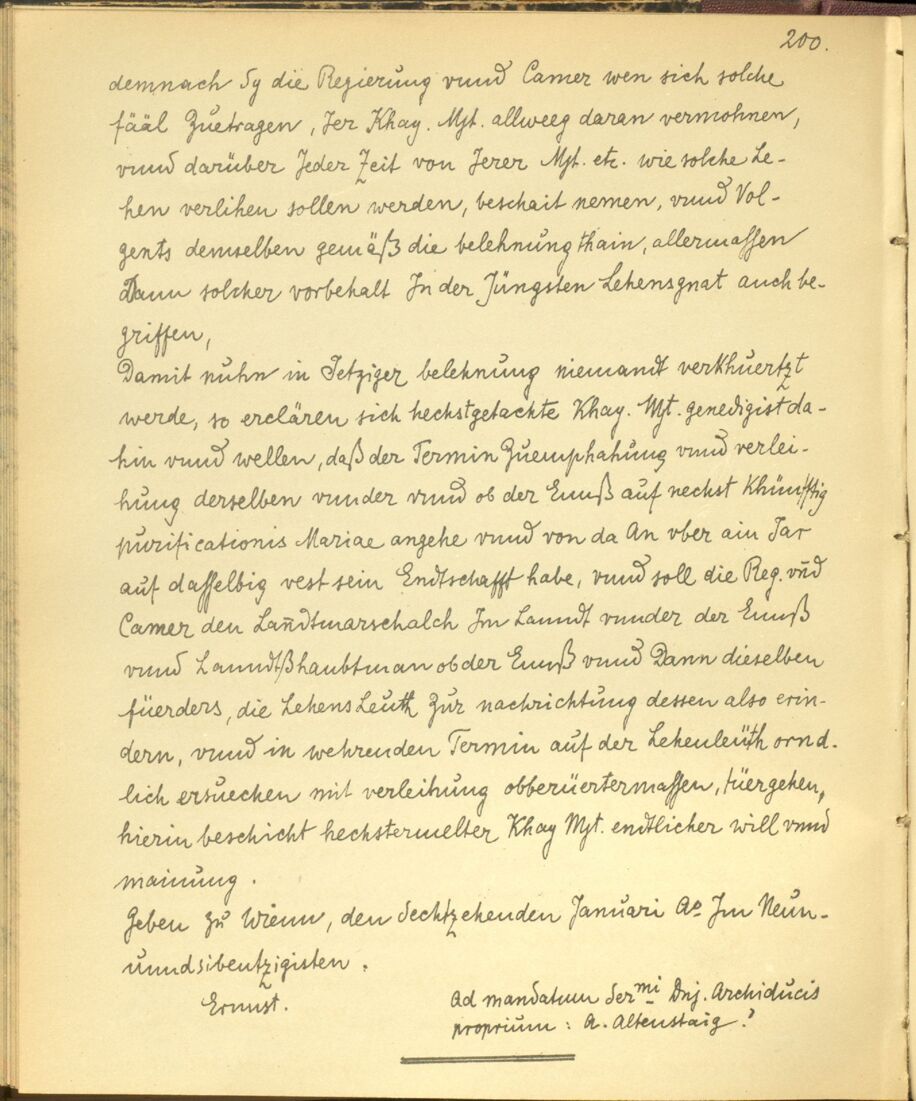 200.
demnach Sy die Regierung vnnd Camer wen sich solche
fääl Zuetragen, Jer Khay. Mjt. allweeg daran vermohnen,
vnnd darüber Jeder Zeit von Jerer Mjt. etc. wie solche Le-
hen verlihen sollen werden, beschait nemen, vnnd Vol-
gents demselben gemäß die belehnung thain, allermassen
Dann solcher vorbehalt In der Jüngsten Lehensgnat auch be-
griffen,
Damit nuhn in Jetziger belehnung niemandt verkhuertzt
werde, so erclären sich hechstgetachte Khay. Mjt. genedigist da-
hin vnnd wellen, daß der Termin Zuemphahung vnnd verlei-
hung derselben vnnder vnnd ob der Ennß auf nechst khünfftig
purificationis Mariae angehe vnnd von da An vber ain Jar
auf dasselbig vest sein Endtschafft habe, vnnd soll die Reg. vnd
Camer den Landtmarschalch Im Lanndt vnnder der Ennß
vnnd Lanndtßhaubtman ob der Ennß vnnd Dann dieselben
füerders, die Lehens Leuth Zur nachrichtung dessen also erin-
dern, vnnd in wehrenden Termin auf der Lehenleüth ornd-
lich ersuechen mit verleihung obberüertermassen, füergehen,
hierin beschicht hechstermelter Khay Mjt. endtlicher will vnnd
mainung.
Geben zu Wienn, den Sechtzehenden Januari Ao Im Neun-
unndsibentzigisten.
Ernnst.
Ad mandatum Sermi Dnj. Archiducis
proprium: A. Altenstaig?